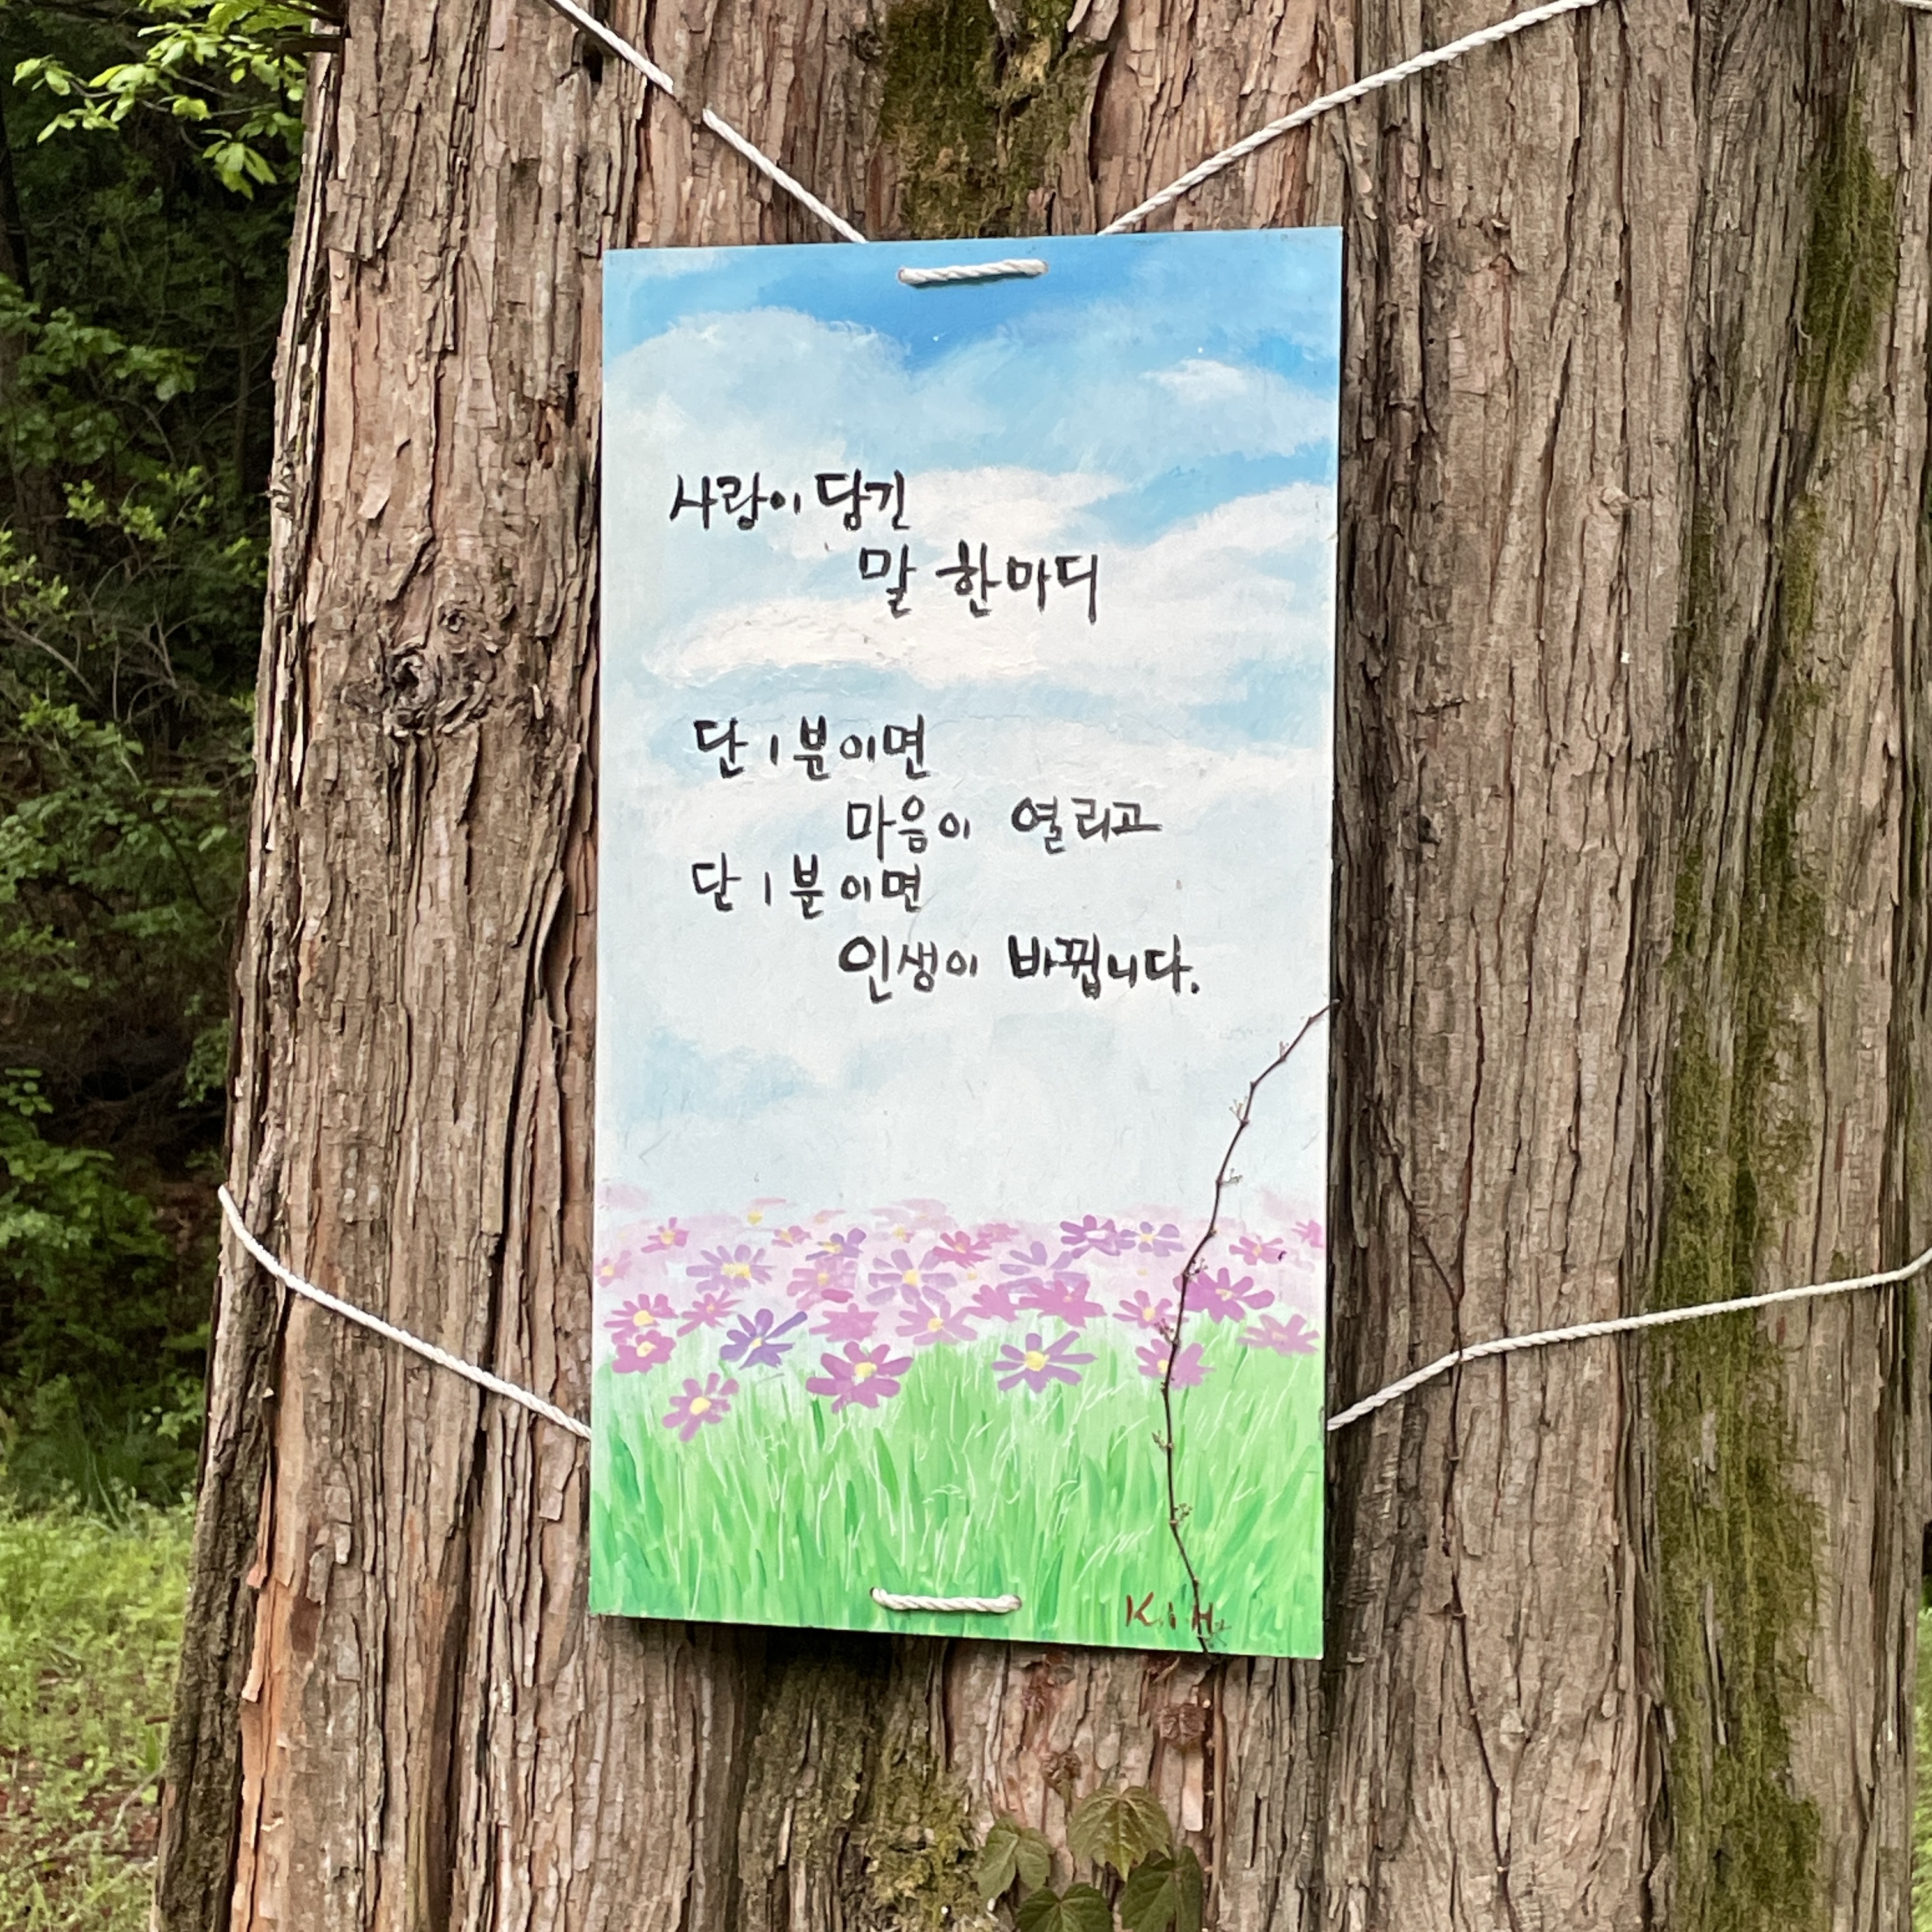 사랑이 담긴
말 한마디
단 1분이면
마음이 열리고
단 1분이면
인생이 바뀝니다.